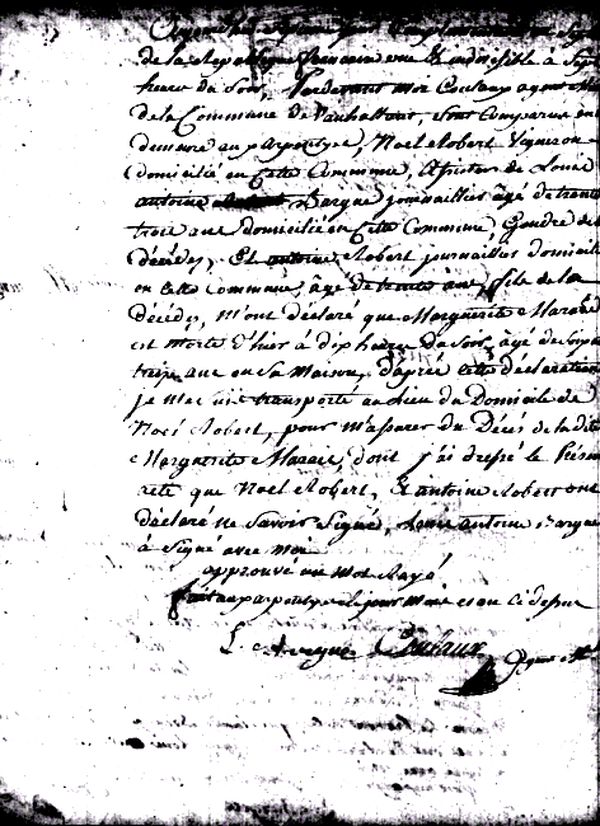 Aujourd'hui
de la Republique francaise une & indivisible à Sept
heure du Soir, Pardevant moi Couteaux agent
de la Commune de Vauhallant, Sont Comparus en
demeure au parponlyee, Noel Robert Vigneron
domicilié en Cette Commune, assisten de Louis
antoine Bargue journaillier âgé de trente
trois ans domicilié en Cette Commune, Gendre de
décédes, Et antoine Robert journaillier domicilié
en Cette Commune, âgé de trente ans, fils de la
décédés, m'ont déclaré que Marguerite Marais
est morte d'hier à dix heures du Soir, âgé de Soixante
treize ans en Sa Maison, d'aprés Cette déclaration
je me suis transporté au lieu du Domicile de
Noel Robert, pour m'assurer du Décés de ladite
Marguerite Marais, dont j'ai dressé le Présent
acte que Noel Robert, Et antoine Robert ont
déclaré ne Savoir Signé, Louis antoine Bargue
à Signé avec moi
approuvé un Mot Rayé
fait au parponlyee le jour Mois et an Ci dessus
L. A Bargue Couteaux agent